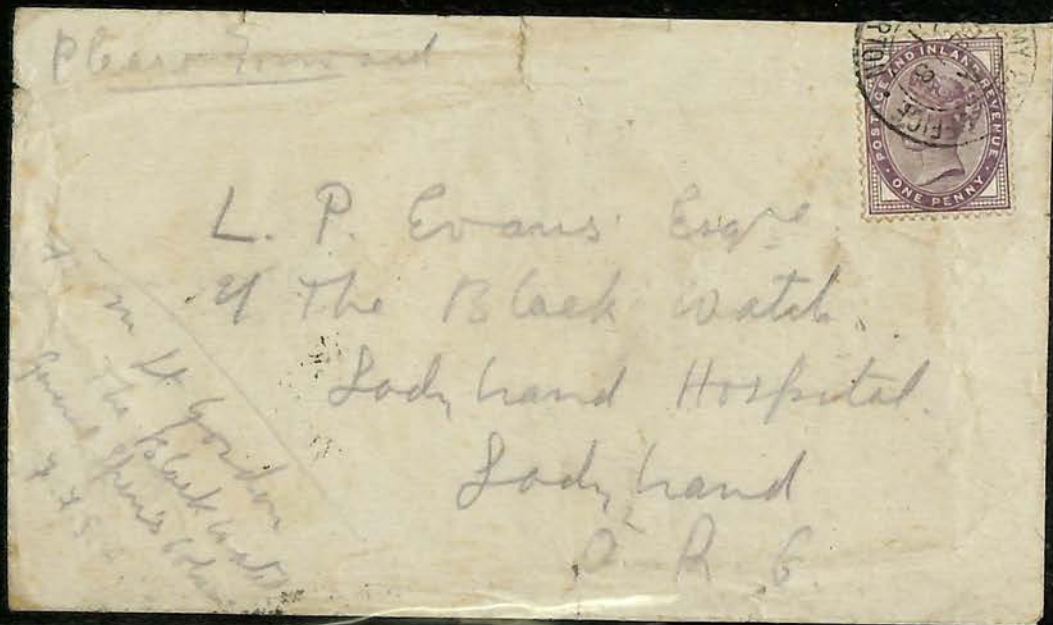 Please Forward
POSTAGE AND INLAND REVENUE
ONE PENNY
L. P. Evans Esqre
of The Black Watch
Ladybrand Hospital.
Ladybrand
O. R. C.
Lt Gordon
The Black Watch